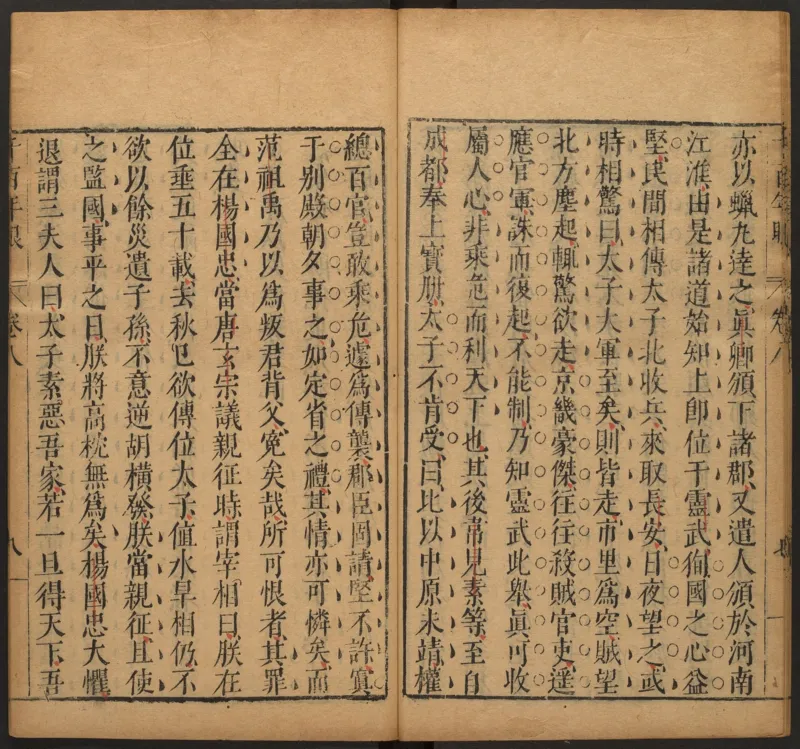 亦以蠟丸達之真卿頒下諸郡又遣人頒於河南
江淮由是諸道始知上卽位于靈武徇國之心益
堅民間相傳太子北收兵來取長安日夜望之或
時相驚曰太子大軍至矣則皆走市里爲空賊望
北方塵起輒驚欲走京畿豪傑往往殺賊官吏遥
應官軍誅而復起不能制乃知靈武此舉眞可收
屬人心非乘危而利天下也其後常見素等至自
成都奉上寶册太子不肯受曰比以中原未靖權
總百官豈敢乘危遽爲傳襲郡臣固請堅不許寘
于別殿朝夕事之如定省之禮其情亦可憐矣而
范祖禹乃以爲叛君背父寃矣哉所可恨者其罪
全在楊國忠當唐玄宗議親征時謂宰相曰朕在
位垂五十載去秋已欲傳位太子值水旱相仍不
欲以餘災遺子孫不意逆胡橫發朕當親征且使
之監國事平之日朕將高枕無爲矣楊國忠大懼
退謂三夫人曰太子素惡吾家若一旦得天下吾
千百年眼 卷八 八